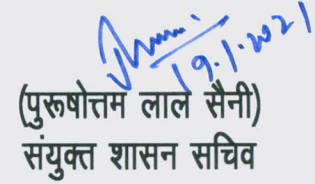 19.1.2021
(पुरूषोत्तम लाल सैनी)
संयुक्त शासन सचिव